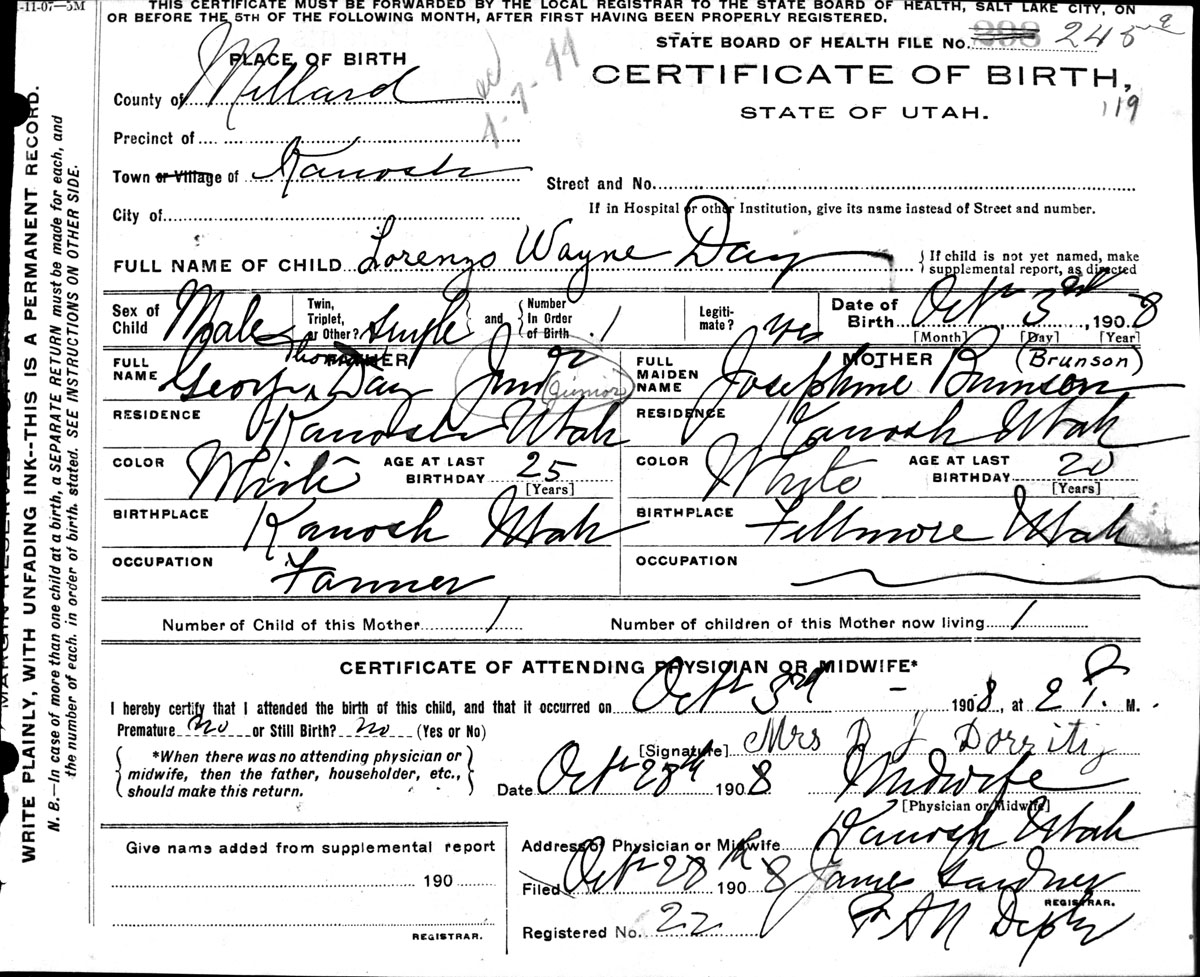 -11-07—5M
THIS CERTIFICATE MUST BE FORWARDED BY THE LOCAL REGISTRAR TO THE STATE BOARD OF HEALTH, SALT LAKE CITY, ON
OR BEFORE THE 5TH OF THE FOLLOWING MONTH, AFTER FIRST HAVING BEEN PROPERLY REGISTERED.
STATE BOARD OF HEALTH FILE No. 298 245
CERTIFICATE OF BIRTH,
119
STATE OF UTAH.
PLACE OF BIRTH
County of Millard
Precinct of
Town or Village of Kanosh
City of
Street and No.
If in Hospital or other Institution, give its name instead of Street and number.
FULL NAME OF CHILD Lorenzo Wayne Day
If child is not yet named, make
supplemental report, as directed
Sex of Child Male
Twin, Triplet, or Other? Single
and Number In Order of Birth 1
Legitimate? yes
Date of Birth Oct 3rd, 1908
[Month] [Day] [Year]
FATHER
FULL NAME George Thomas Day Junr (junior)
MOTHER
FULL MAIDEN NAME Josephine Brunson (Brunson)
RESIDENCE Kanosh Utah
RESIDENCE Kanosh Utah
COLOR White AGE AT LAST BIRTHDAY 25 [Years]
COLOR White AGE AT LAST BIRTHDAY 20 [Years]
BIRTHPLACE Kanosh Utah
BIRTHPLACE Fillmore Utah
OCCUPATION Farmer
OCCUPATION
Number of Child of this Mother 1
Number of children of this Mother now living 1
CERTIFICATE OF ATTENDING PHYSICIAN OR MIDWIFE*
I hereby certify that I attended the birth of this child, and that it occurred on Oct 3rd 1908, at 2 P. M.
Premature No or Still Birth? No (Yes or No)
*When there was no attending physician or
midwife, then the father, householder, etc.,
should make this return.
[Signature] Mrs D J Dorrity
Date Oct 28th 1908 Midwife
[Physician or Midwife]
Address of Physician or Midwife Kanosh Utah
Filed Oct 28th 1908 James Gardner
REGISTRAR.
Registered No. 22
Give name added from supplemental report
190
REGISTRAR.
WRITE PLAINLY, WITH UNFADING INK--THIS IS A PERMANENT RECORD.
N. B.—In case of more than one child at a birth, a SEPARATE RETURN must be made for each, and
the number of each, in order of birth, stated. SEE INSTRUCTIONS ON OTHER SIDE.